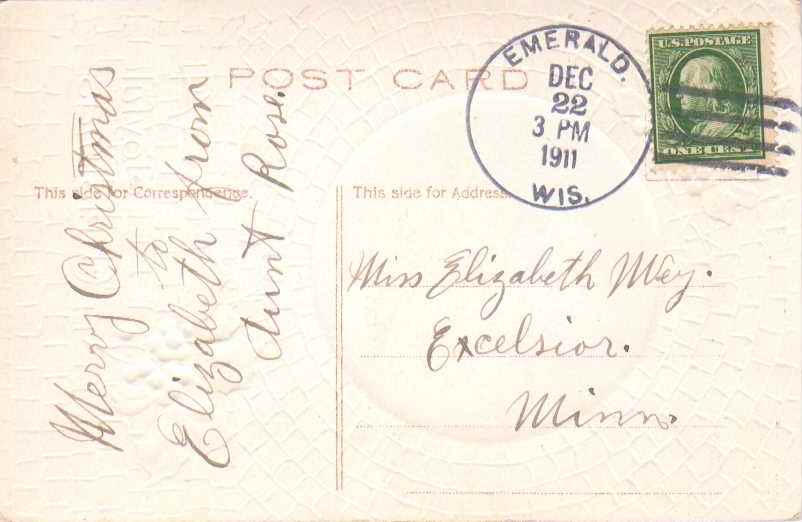 POST CARD
EMERALD.
DEC
22
3 PM
1911
WIS.
U.S. POSTAGE
ONE CENT
This side for Correspondence.
This side for Address.
Merry Christmas
to
Elizabeth from
Aunt Rose.
Miss Elizabeth May.
Excelsior.
Minn.